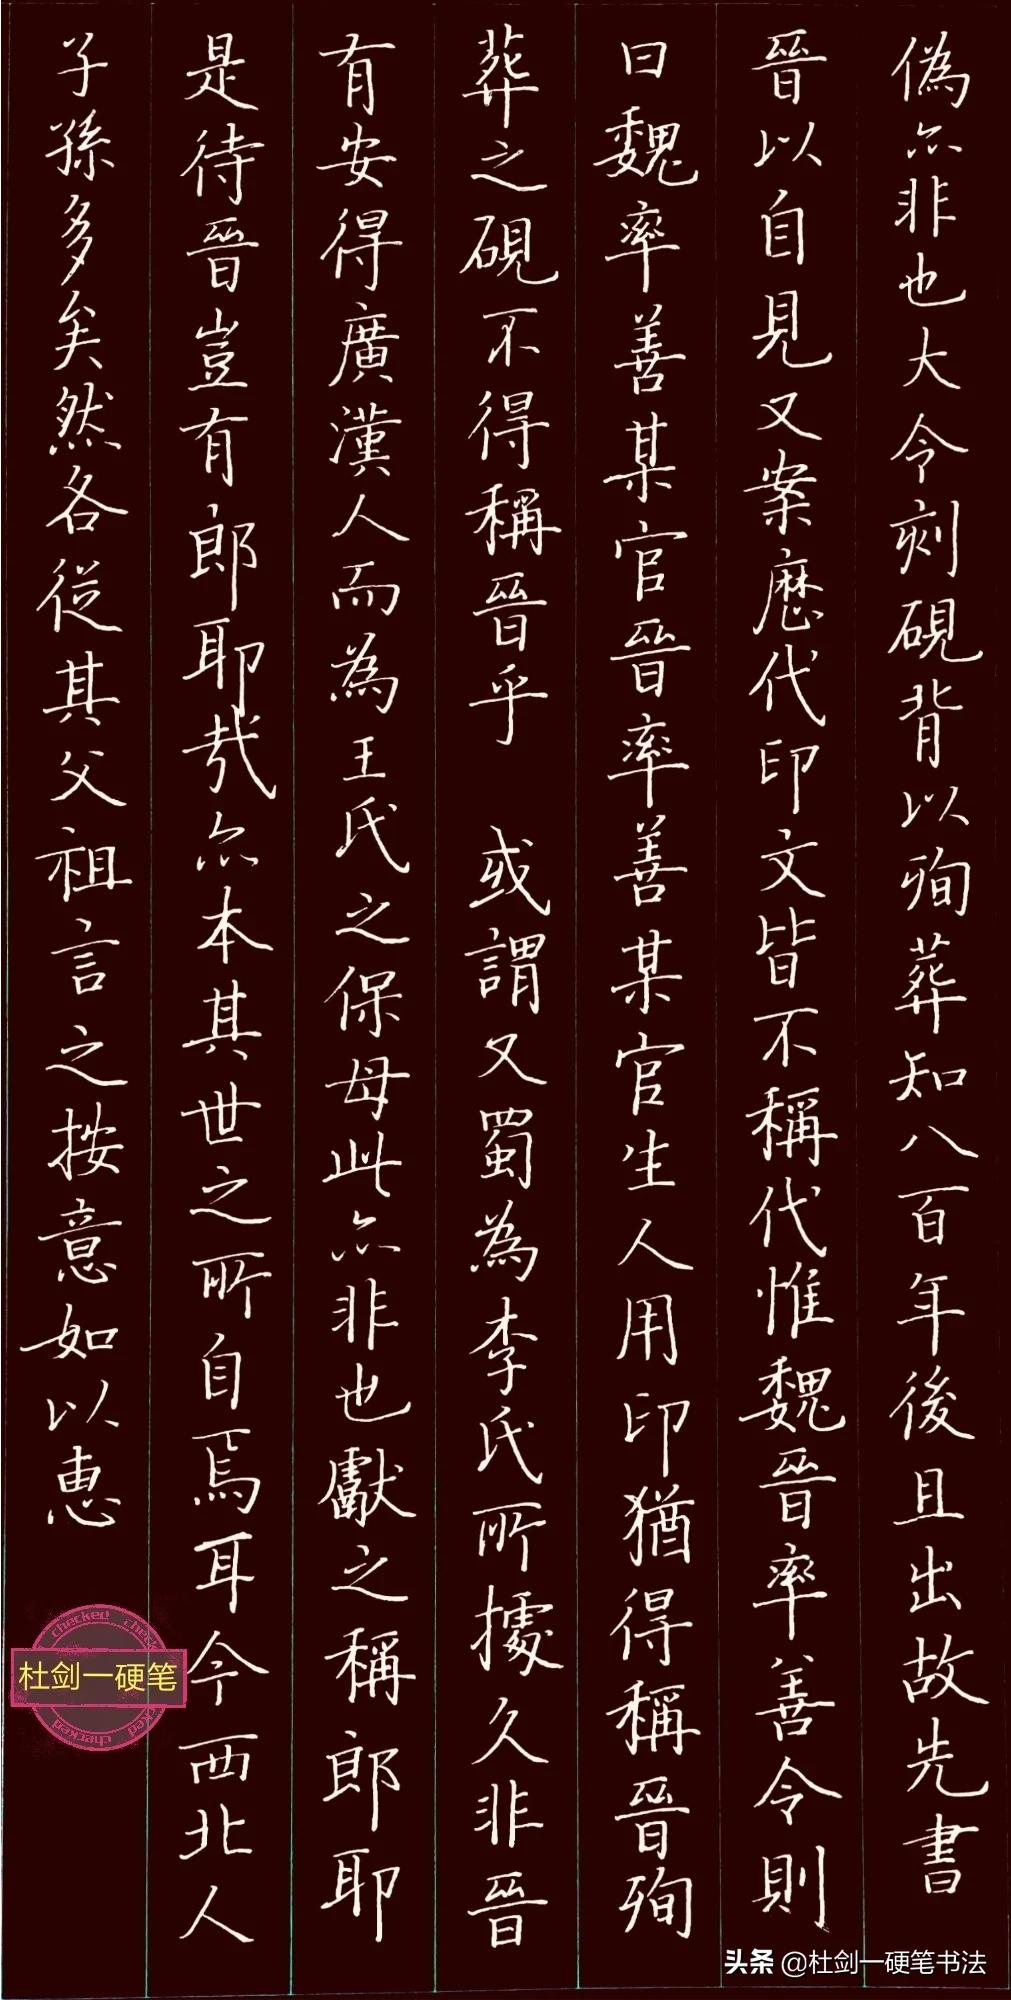 偽亦非也大令刻硯背以殉葬知八百年後且出故先書
晉以自見又案歷代印文皆不稱代惟魏晉率善令則
曰魏率善某官晉率善某官生人用印猶得稱晉殉
葬之硯不得稱晉乎 或謂又蜀為李氏所據久非晉
有安得廣漢人而為王氏之保母此亦非也獻之稱郎耶
是待晉豈有郎耶哉亦本其世之所自焉耳今西北人
子孫多矣然各從其父祖言之按意如以惠
checked
杜剑一硬笔
checked
头条 @杜剑一硬笔书法